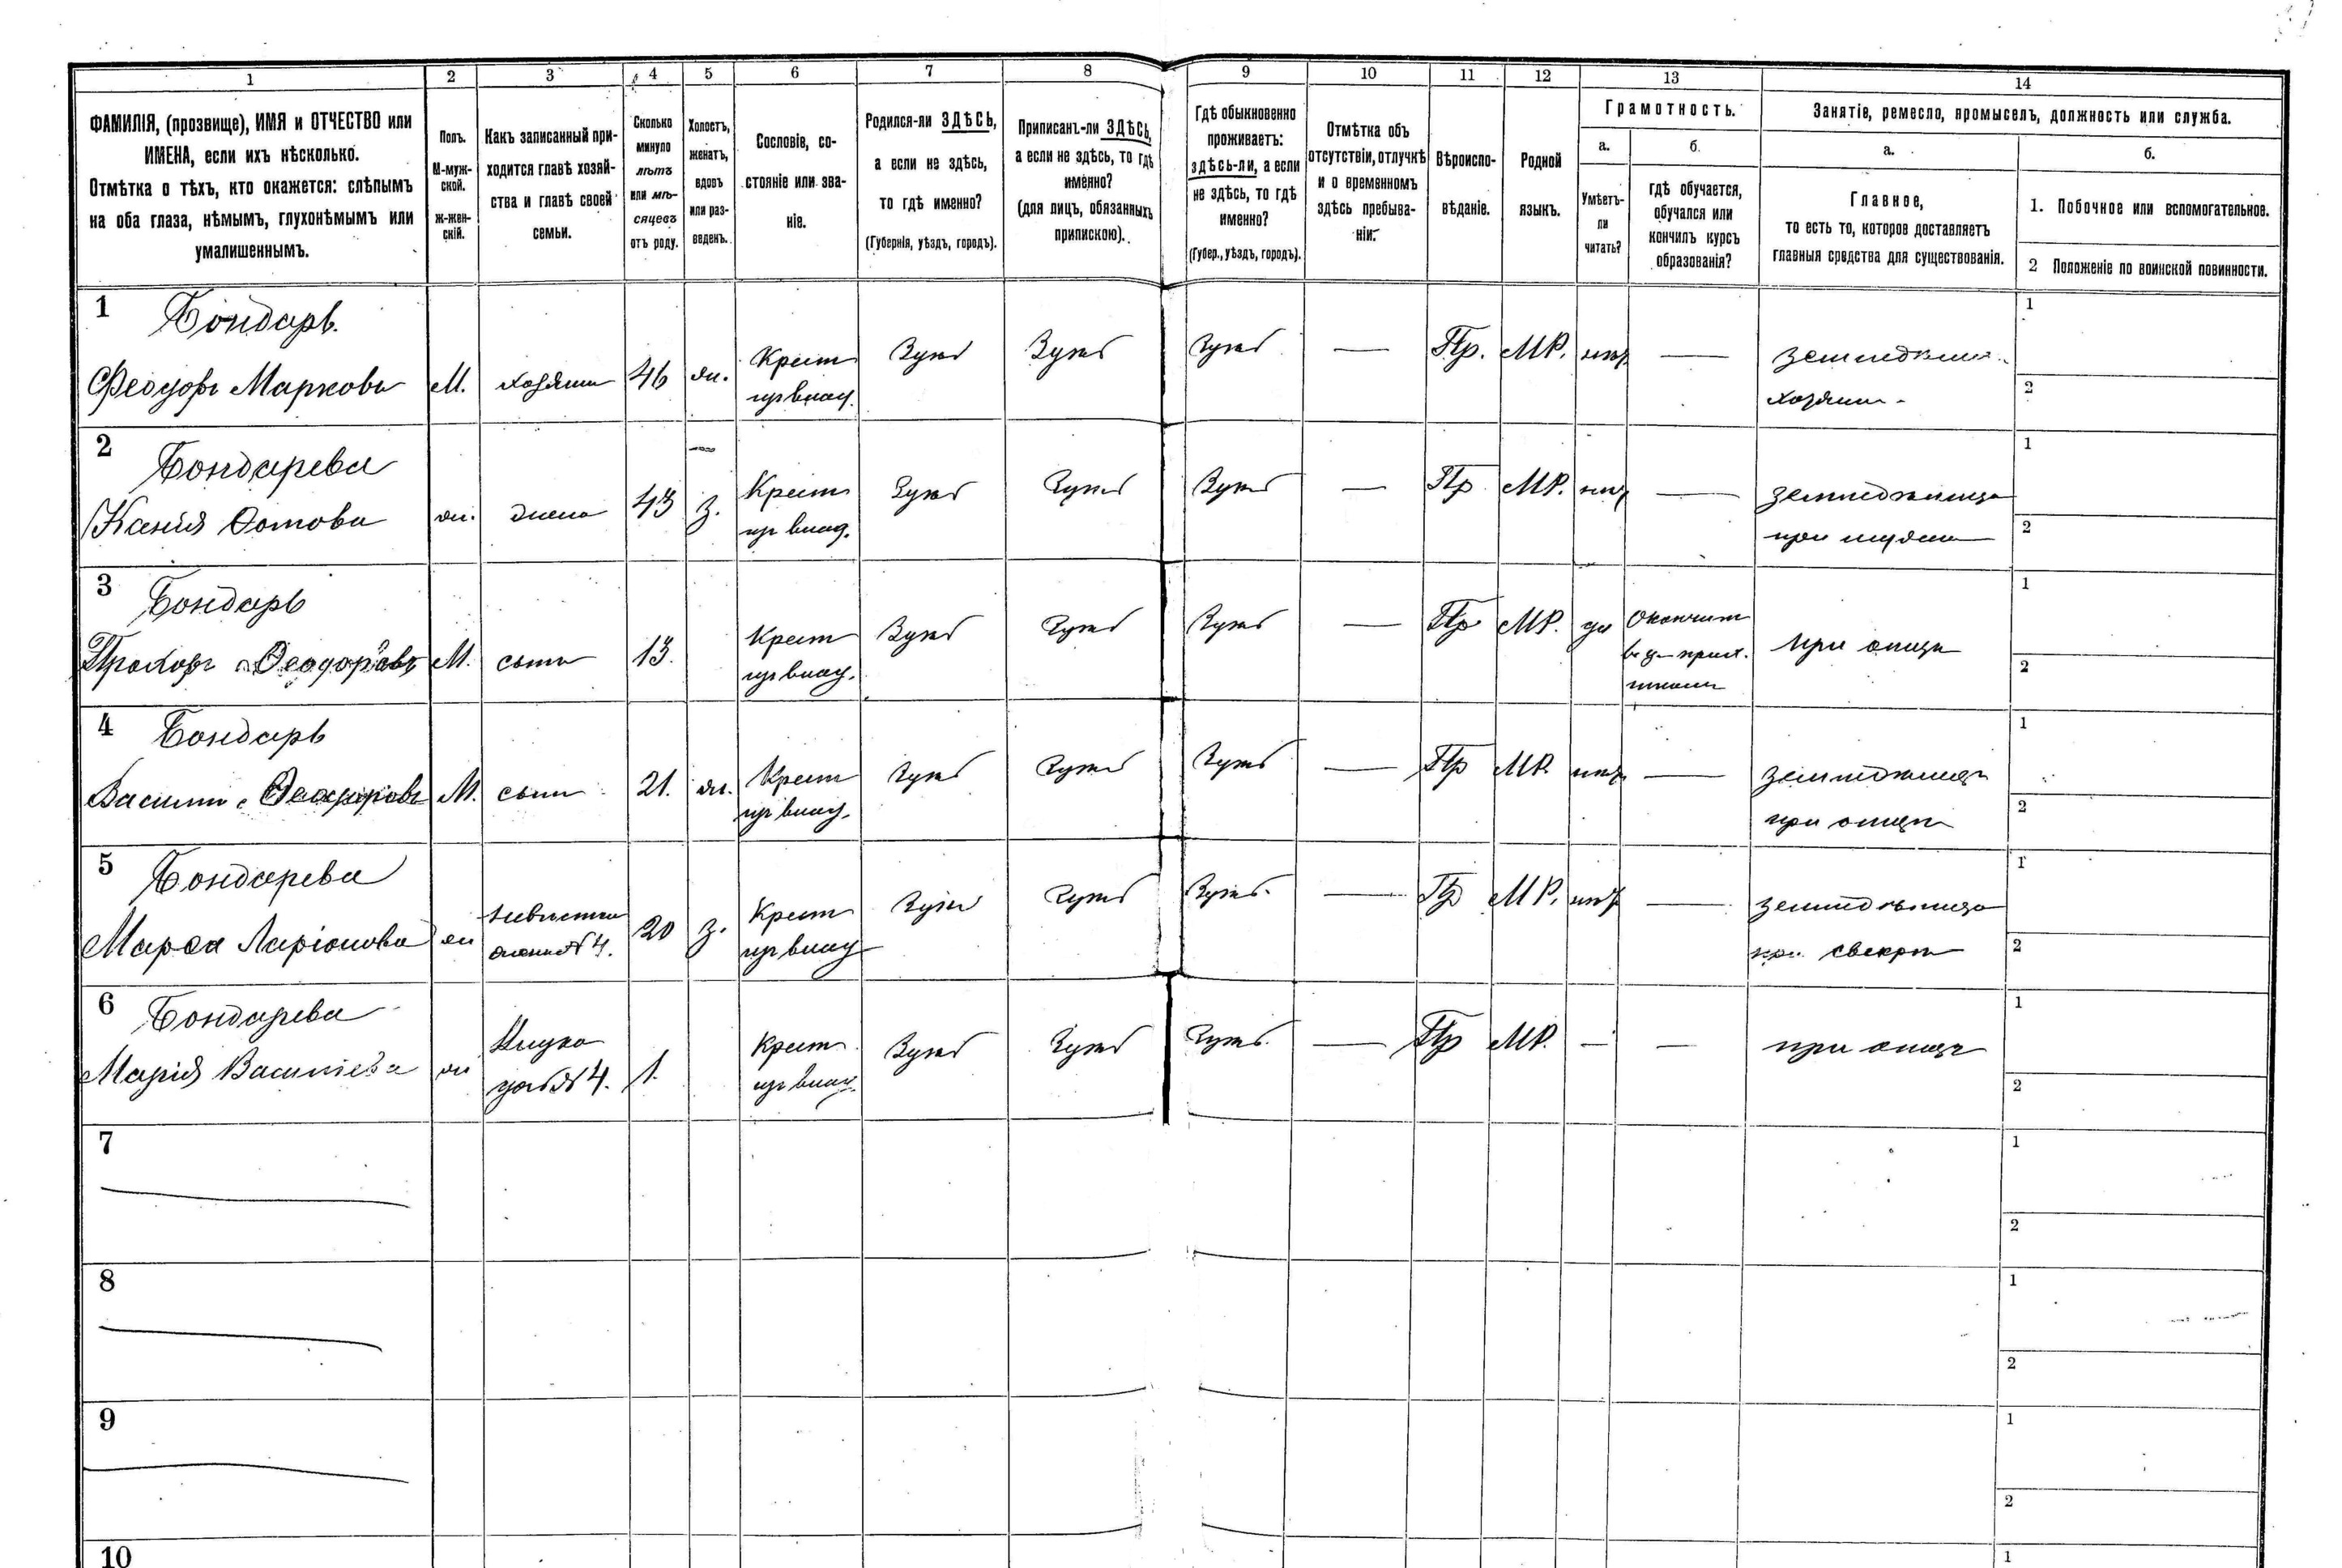 1 2 3 4 5 6 7 8 9 10 11 12 13 14
ФАМИЛІЯ, (прозвище), ИМЯ и ОТЧЕСТВО или
ИМЕНА, если ихъ нѣсколько.
Отмѣтка о тѣхъ, кто окажется: слѣпымъ
на оба глаза, нѣмымъ, глухонѣмымъ или
умалишеннымъ.
Полъ.
М-муж-
ской.
ж-жен-
скій.
Какъ записанный при-
ходится главѣ хозяй-
ства и главѣ своей
семьи.
Сколько
минуло
лѣтъ
или мѣ-
сяцевъ
отъ роду.
Холостъ,
женатъ,
вдовъ
или раз-
веденъ.
Сословіе, со-
стояніе или зва-
ніе.
Родился-ли ЗДѢСЬ,
а если не здѣсь,
то гдѣ именно?
(Губернія, уѣздъ, городъ).
Приписанъ-ли ЗДѢСЬ,
а если не здѣсь, то гдѣ
именно?
(для лицъ, обязанныхъ
припискою).
Гдѣ обыкновенно
проживаетъ:
здѣсь-ли, а если
не здѣсь, то гдѣ
именно?
(Губер., уѣздъ, городъ).
Отмѣтка объ
отсутствіи, отлучкѣ
и о временномъ
здѣсь пребыва-
ніи.
Вѣроиспо-
вѣданіе.
Родной
языкъ.
Грамотность.
а.
Умѣетъ-
ли
читать?
б.
гдѣ обучается,
обучался или
кончилъ курсъ
образованія?
Занятіе, ремесло, промыселъ, должность или служба.
а.
Главное,
то есть то, которое доставляетъ
главныя средства для существованія.
б.
1. Побочное или вспомогательное.
2 Положеніе по воинской повинности.
1 Бондарь.
Феодоръ Марковъ М. хозяинъ 46 ж. Крест Здѣсь Здѣсь Здѣсь — Пр. МР. нѣтъ —
хозяинъ
1
2
2 Бондарева
Ксенія Фомова ж. жена 43 з. Крест Здѣсь Здѣсь Здѣсь — Пр МР. нѣтъ —
1
2
3 Бондарь
Прохоръ Феодоровъ М. сынъ 13. Крест Здѣсь Здѣсь Здѣсь — Пр МР. да
при отцѣ
1
2
4 Бондарь
Василій Феодоровъ М. сынъ 21. ж. Крест Здѣсь Здѣсь Здѣсь — Пр МР. нѣтъ —
при отцѣ
1
2
5 Бондарева
Марѳа Ларіонова ж невѣстка
жена №4. 20 з. Крест Здѣсь Здѣсь Здѣсь — Пр МР. нѣтъ —
при свекрѣ
1
2
6 Бондарева
Марія Васильева ж Внука
дочь №4. 1. Крест Здѣсь Здѣсь Здѣсь — Пр МР. — —
при отцѣ
1
2
7
1
2
8
1
2
9
1
2
10
1